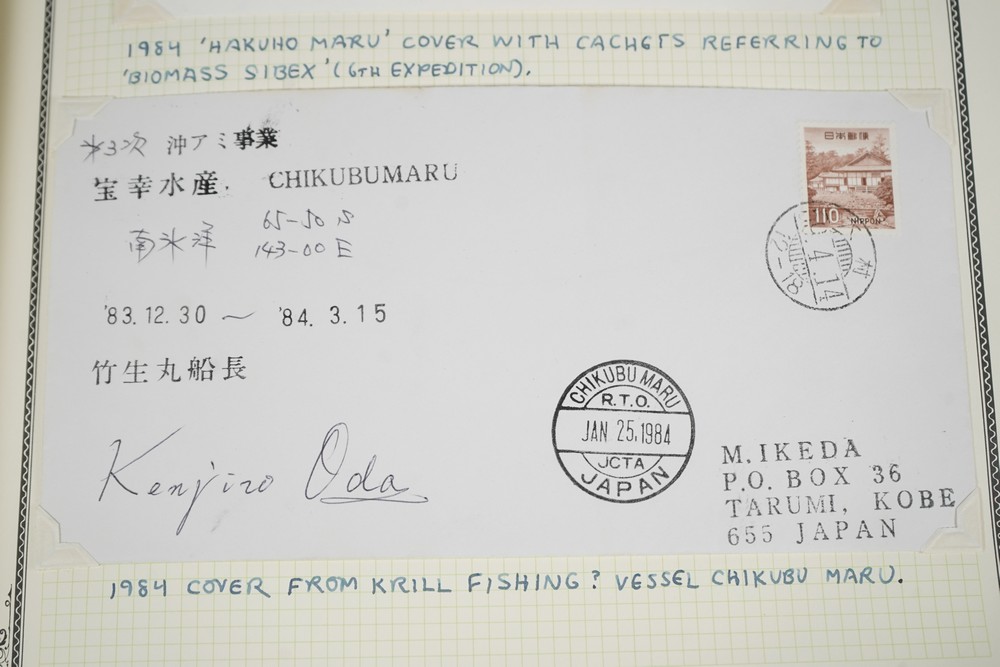 1984 'HAKUHO MARU' COVER WITH CACHETS REFERRING TO
'BIOMASS SIBEX' (6TH EXPEDITION).
3次 沖アミ事業
宝幸水産. CHIKUBUMARU
南氷洋
65-50 S
143-00 E
'83.12.30 ～ '84. 3.15
竹生丸船長
Kenjiro Oda
日本郵便
110 NIPPON
村
4.14
12-18
CHIKUBU MARU
R.T.O.
JAN 25,1984
JCTA
JAPAN
M.IKEDA
P.O. BOX 36
TARUMI, KOBE
655 JAPAN
1984 COVER FROM KRILL FISHING? VESSEL CHIKUBU MARU.